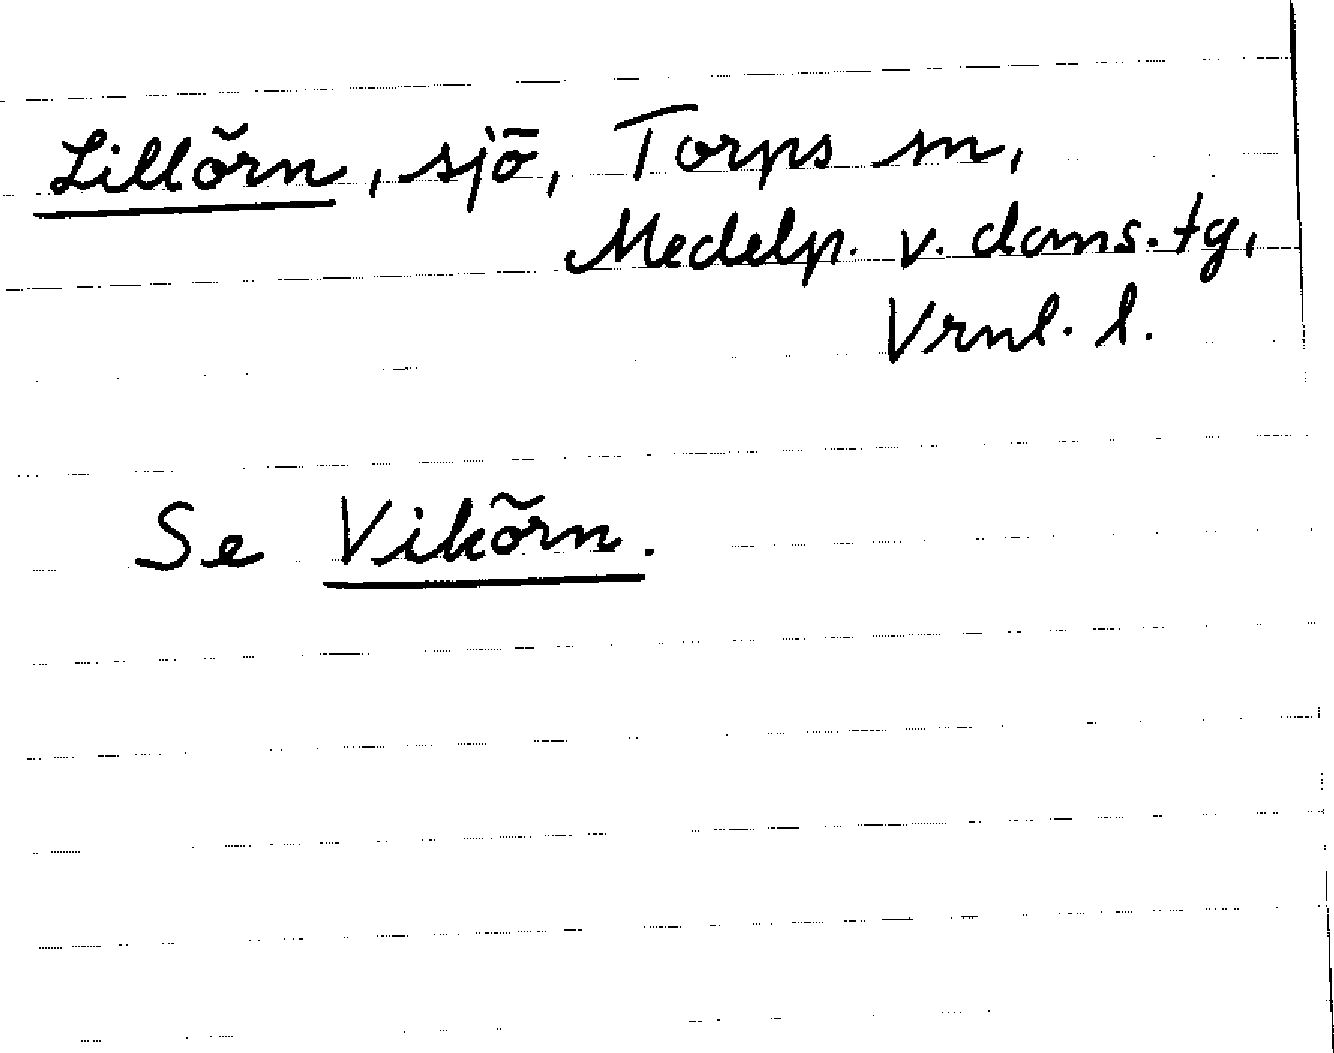 Lillörn, sjö, Torps sn,
Medelp. v. doms. tg,
Vrnl. l.
Se Vikörn.